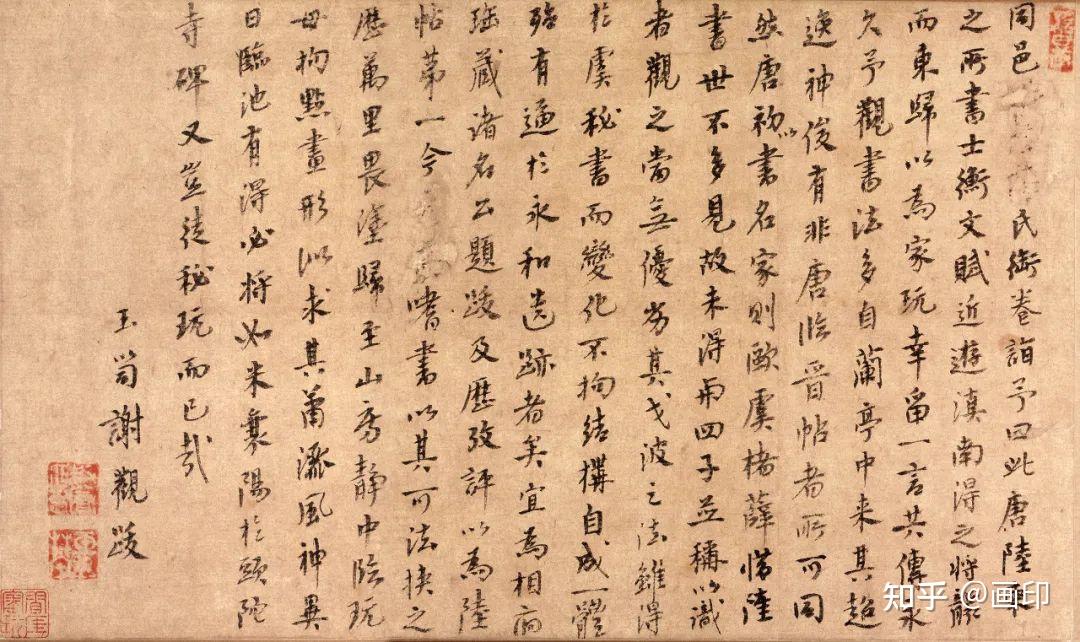 同邑氏銜卷詣予曰此唐陸柬
之所書士衡文賦近遊滇南得之将齎
而東歸以為家玩幸留一言共傳永
久予觀書法多自蘭亭中来其超
逸神俊有非唐臨晉帖者所可同
然唐初以書名家則歐虞楮薛惜陸
書世不多見故未得与四子並稱以識
者觀之當無優劣其戈波之法雖得
於虞秘書而變化不拘結構自成一體
殆有逼於永和遺跡者矣宜為相府
珎藏诸名公題跋及歷攷評以為陸
帖第一今嗜書以其可法挟之
歷萬里畏塗歸至山齋静中臨玩
毋拘點畫形似求其蕭㵼風神異
日臨池有得必将如米襄陽於頭陀
寺碑又豈徒秘玩而已哉
玉笥謝觀跋
知乎 @画印